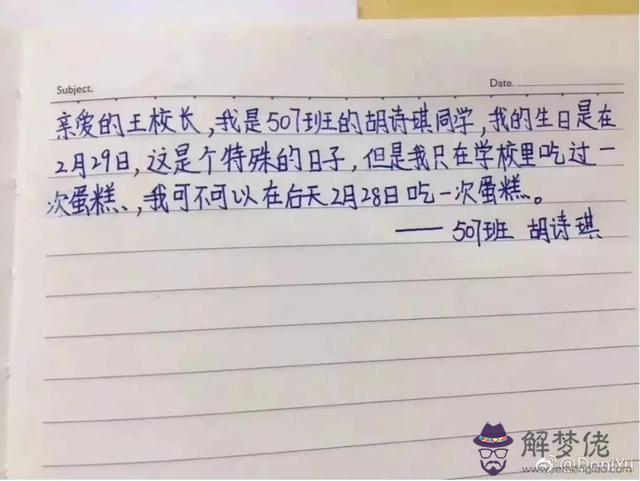 Subject.
Date.
亲爱的王校长,我是507班的胡诗琪同学,我的生日是在
2月29日,这是个特殊的日子,但是我只在学校里吃过一
次蛋糕、,我可不可以在后天2月28日吃一次蛋糕。
—— 507班 胡诗琪
解梦佬
www.jiemenglao.com